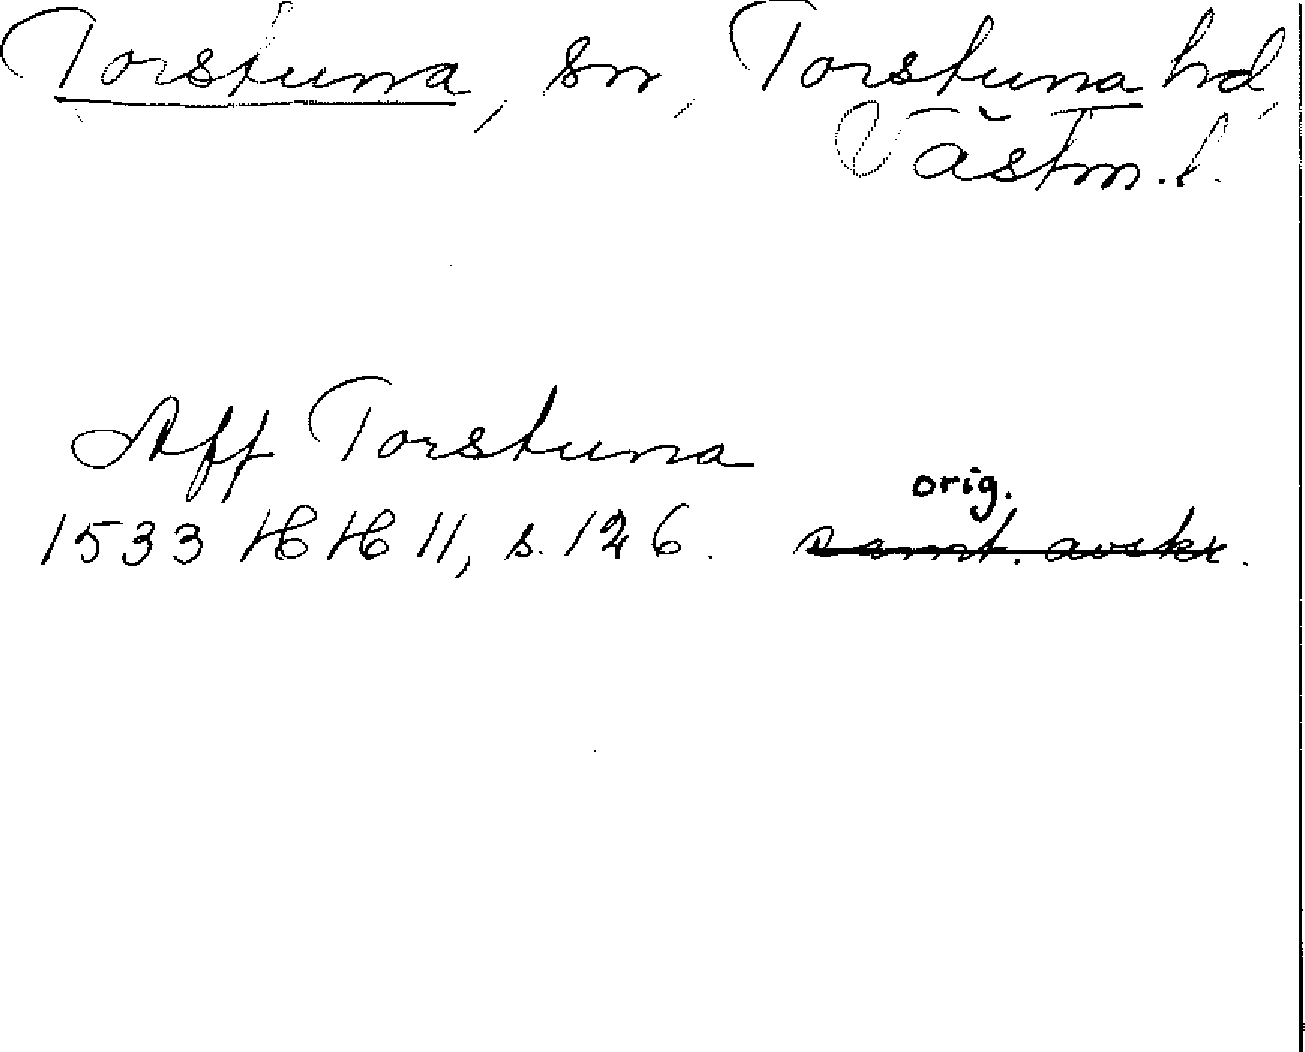 Torstuna, sn, Torstuna hd,
Västm. l.
Aff Torstuna
orig.
1533 HH 11, s. 126. samt. avskr.